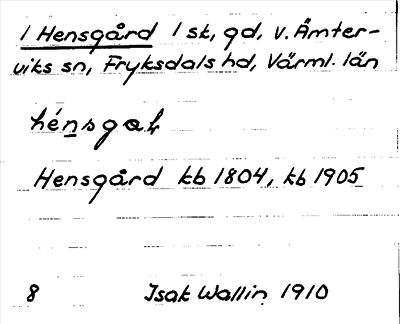 1 Hensgård 1 sk, gd, V. Ämter-
viks sn, Fryksdals hd, Värml. län
hénsgaḷ
Hensgård kb 1804, kb 1905
8 Isak Wallin 1910